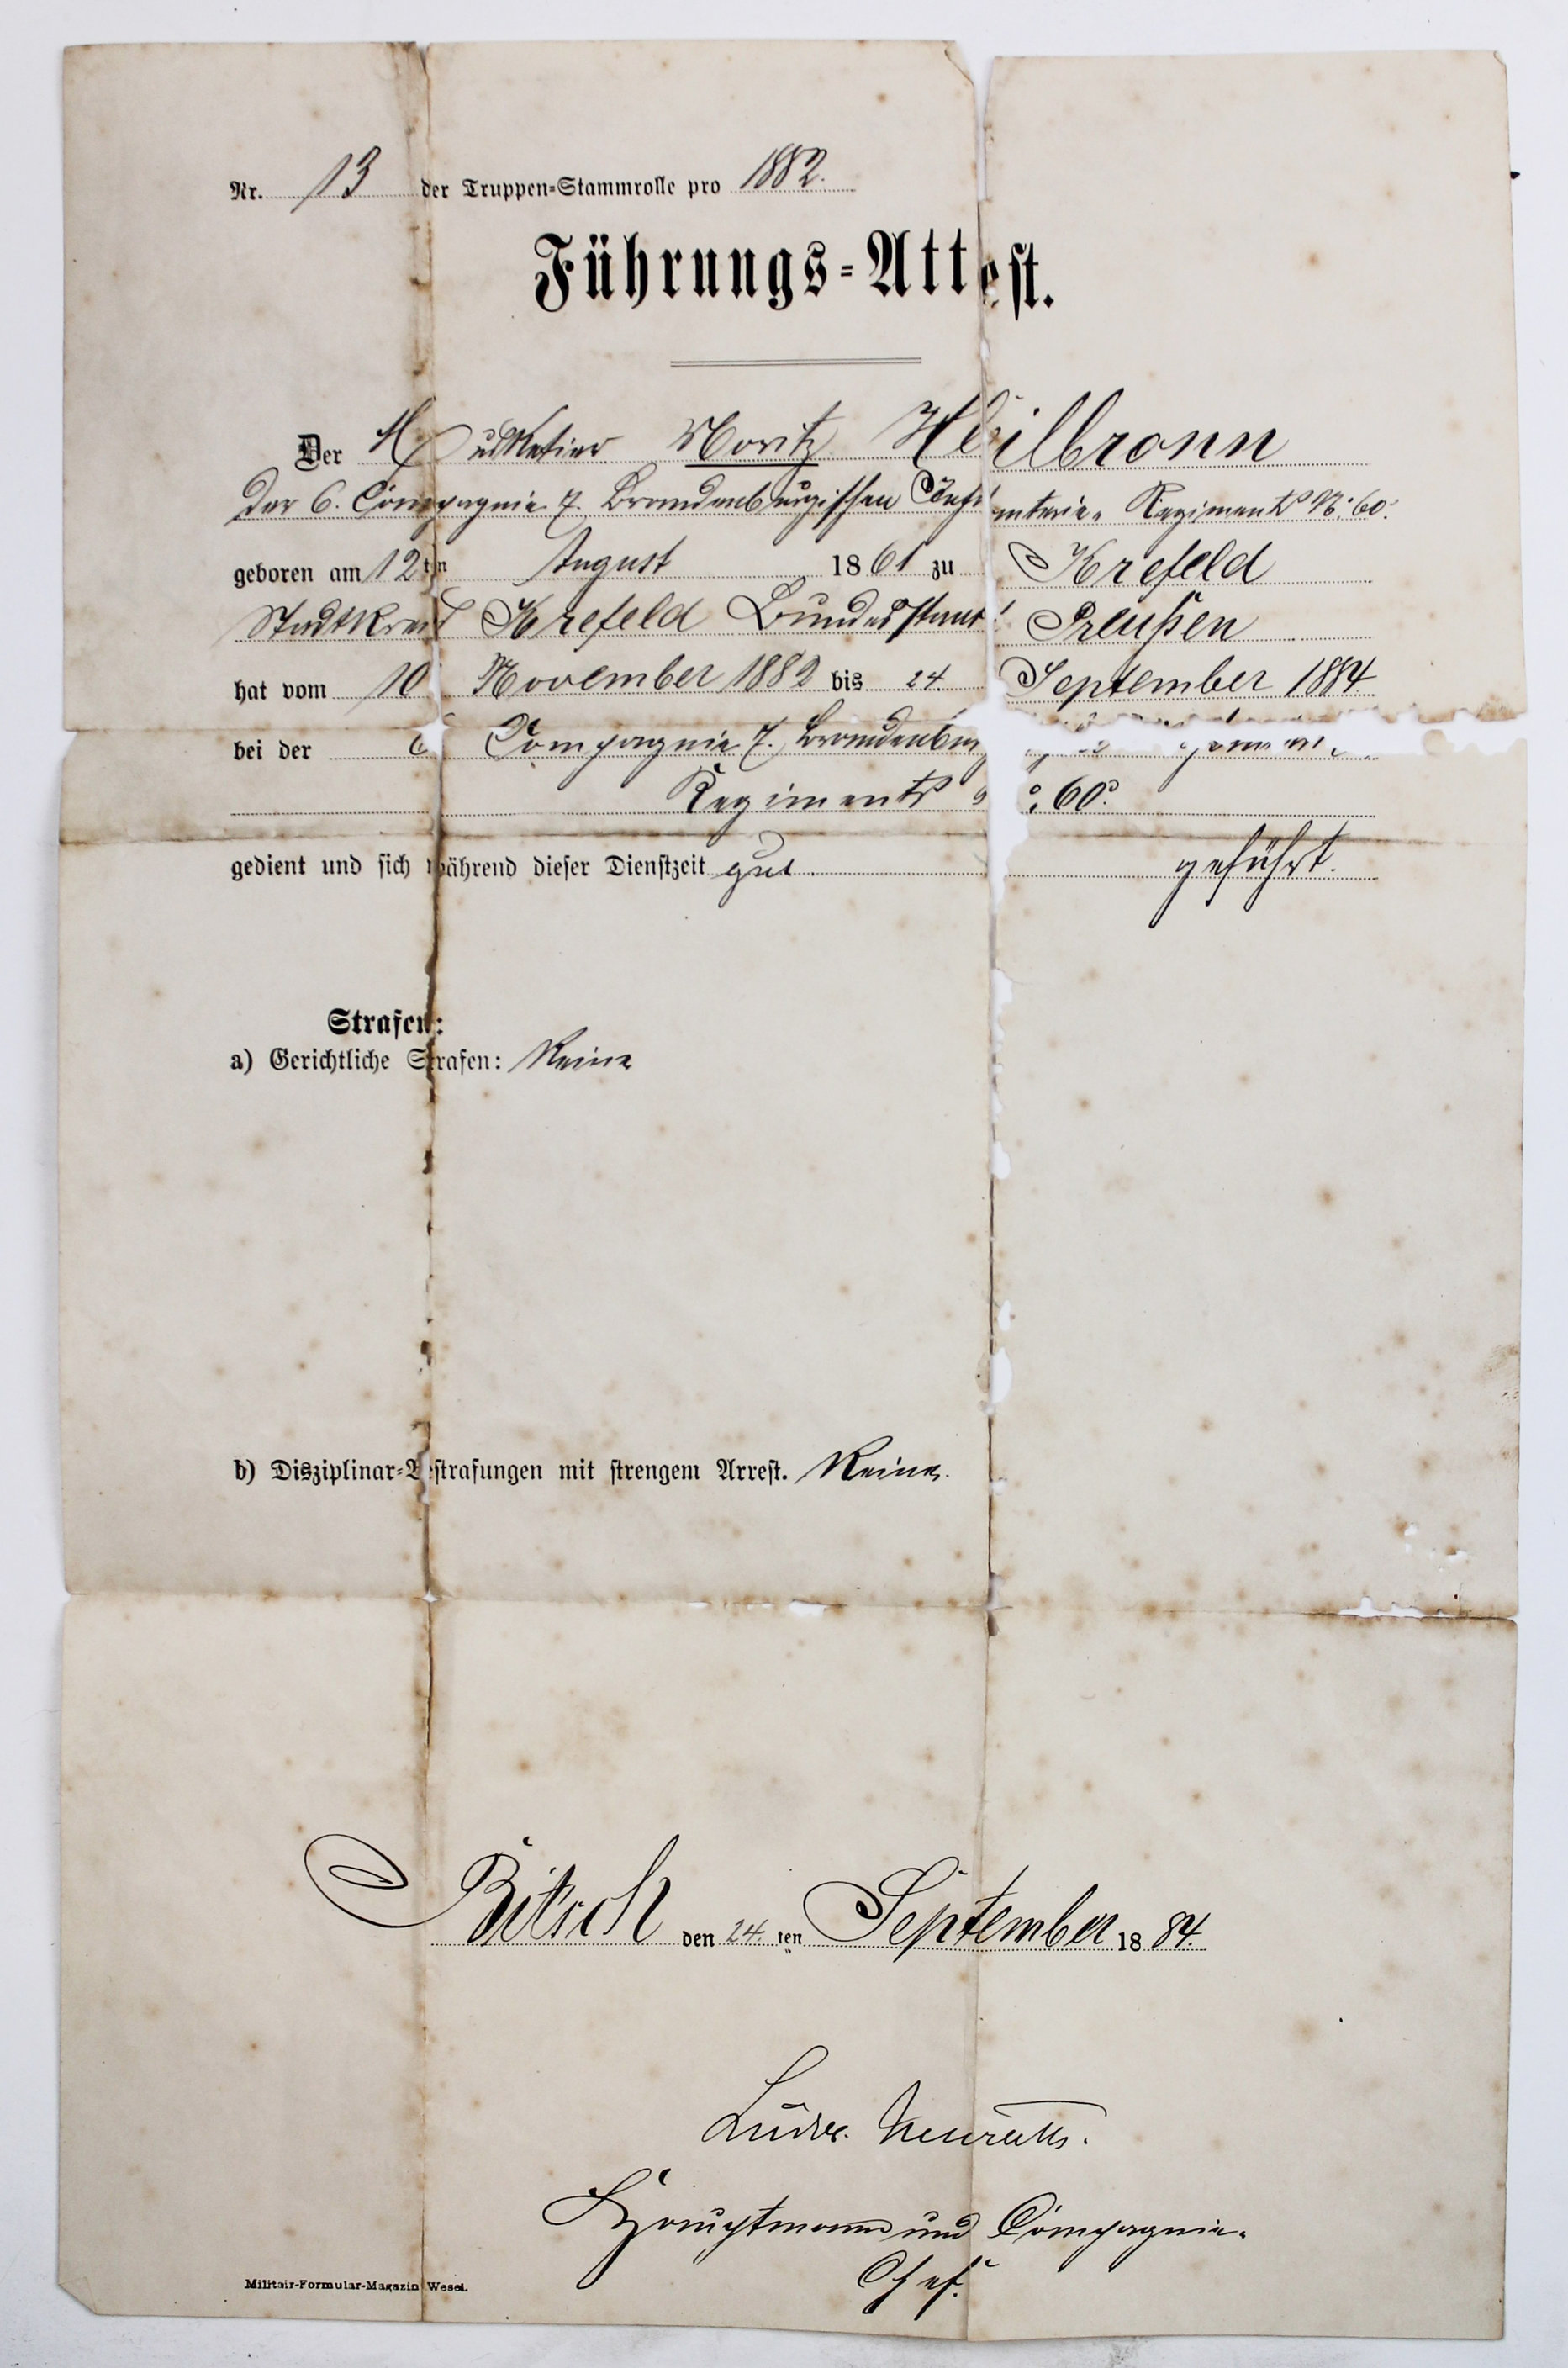 Nr. 13 der Truppen-Stammrolle pro 1882.
Führungs-Attest.
Der Musketier Moritz Heilbronn
der 6. Compagnie 7. Brandenburgischen Infanterie-Regiments No. 60.
geboren am 12ten August 1861 zu Krefeld
Stadtkreis Krefeld Bundesstaat Preußen
hat vom 10 November 1882 bis 24. September 1884
bei der 6 Compagnie 7. Brandenburg
Regiments 60.
gedient und sich während dieser Dienstzeit gut. geführt.
Strafen:
a) Gerichtliche Strafen: Keine
b) Disziplinar-Bestrafungen mit strengem Arrest. Keine.
Bitsch den 24. ten September 1884.
Hauptmann und Compagnie-
Chef.
Militair-Formular-Magazin Wesel.